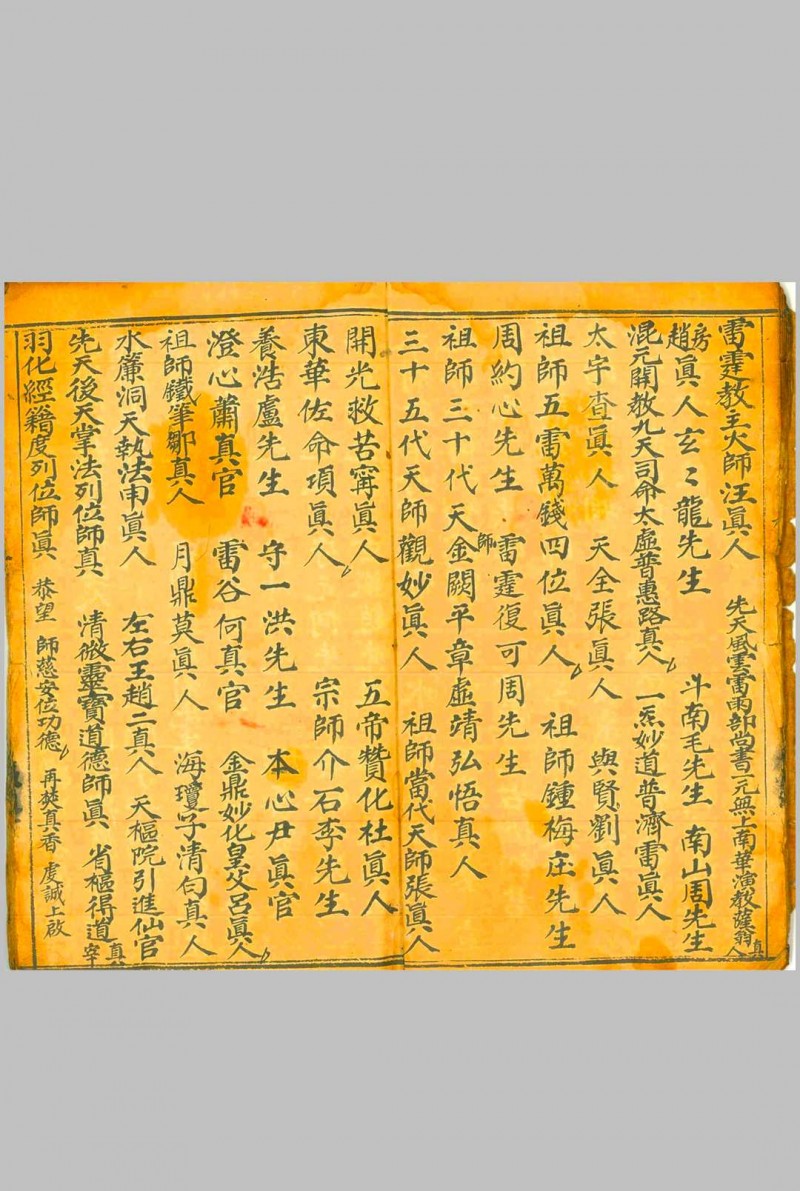 雷霆教主火師汪眞人 先天風雲雷雨部尚書一元無上南華演教薩翁真人
房趙眞人玄々龍先生 斗南毛先生 南山周先生
混元開教九天司命太虛普惠路真人 一炁妙道普濟雷眞人
太宇查眞人 天全張眞人 與賢劉眞人
祖師五雷萬錢四位眞人 祖師鍾梅庄先生
周約心先生 雷霆復可周先生
祖師三十代天師金闕平章虛靖弘悟真人
三十五代天師觀妙眞人 祖師當代天師張眞人
開光救苦甯眞人 五帝贊化杜眞人
東華佐命項眞人 宗師介石李先生
養浩盧先生 守一洪先生 本心尹眞官
澄心蕭真官 雷谷何真官 金鼎妙化皇父呂眞人
祖師鐵筆鄒真人 月鼎莫眞人 海瓊子清白真人
水簾洞天執法南眞人 左右王趙二真人 天樞院引進仙官
先天後天掌法列位師真 清微靈寶道德師眞 省樞得道真宰
羽化經籍度列位師眞 恭望 師慈安位功德 再爇真香 虔誠上啟